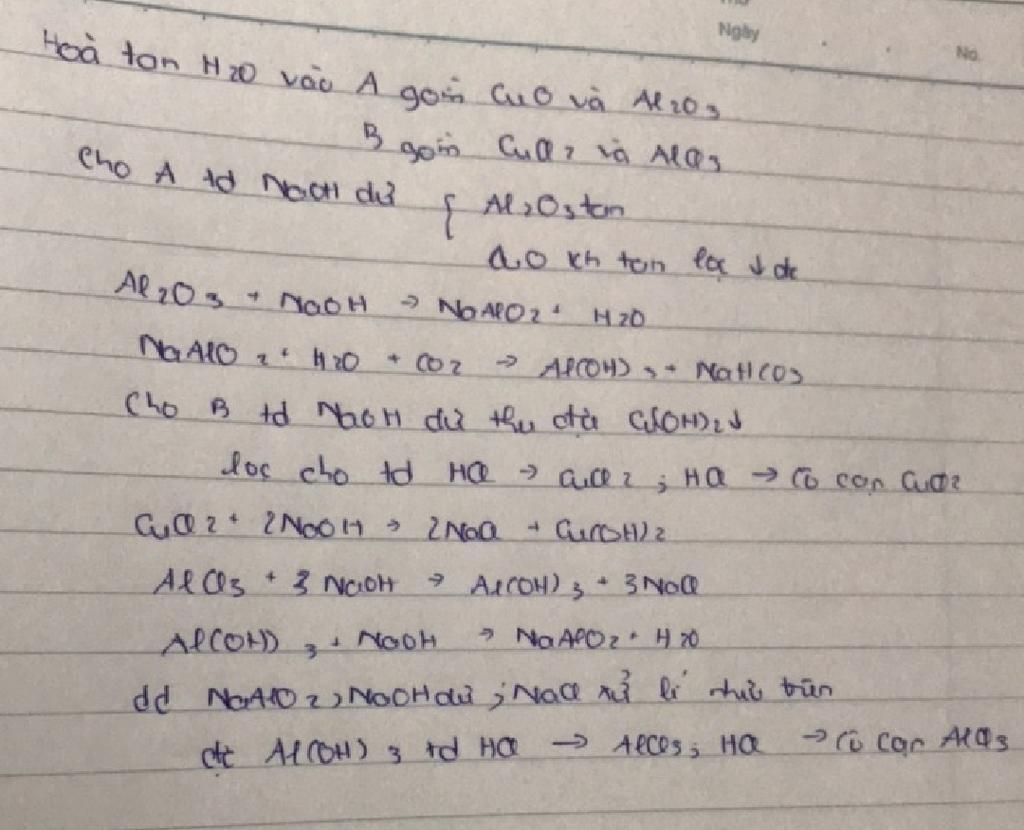 Ngày
No.
Hoà tan H2O vào A gồm CuO và Al2O3
B gồm CuCl2 và AlCl3
Cho A td NaOH dư { Al2O3 tan
CuO kh tan lọc ↓ đc
Al2O3 + NaOH → NaAlO2 + H2O
NaAlO2 + H2O + CO2 → Al(OH)3 + NaHCO3
Cho B td NaOH dư thu đc Cu(OH)2↓
lọc cho td HCl → CuCl2 ; HCl → Cô cạn CuCl2
CuCl2 + 2NaOH → 2NaCl + Cu(OH)2
AlCl3 + 3NaOH → Al(OH)3 + 3NaCl
Al(OH)3 + NaOH → NaAlO2 + H2O
dd NaAlO2 ; NaOH dư ; NaCl xử lí như trên
đc Al(OH)3 td HCl → AlCl3 ; HCl → Cô cạn AlCl3